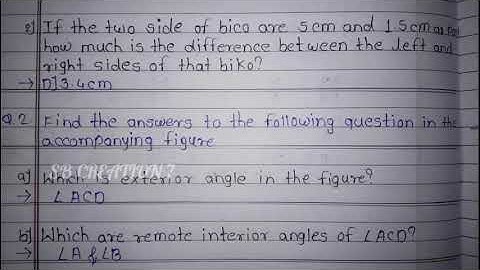 e) If the two side of bico are 5cm and 1.5cm
how much is the difference between the left and
right sides of that biko?
→ D] 3.4cm
Q.2 Find the answers to the following question in the
accompanying figure
SB CREATION 7
a) Which is exterior angle in the figure?
→ ∠ACD
b) Which are remote interior angles of ∠ACD?
→ ∠A & ∠B